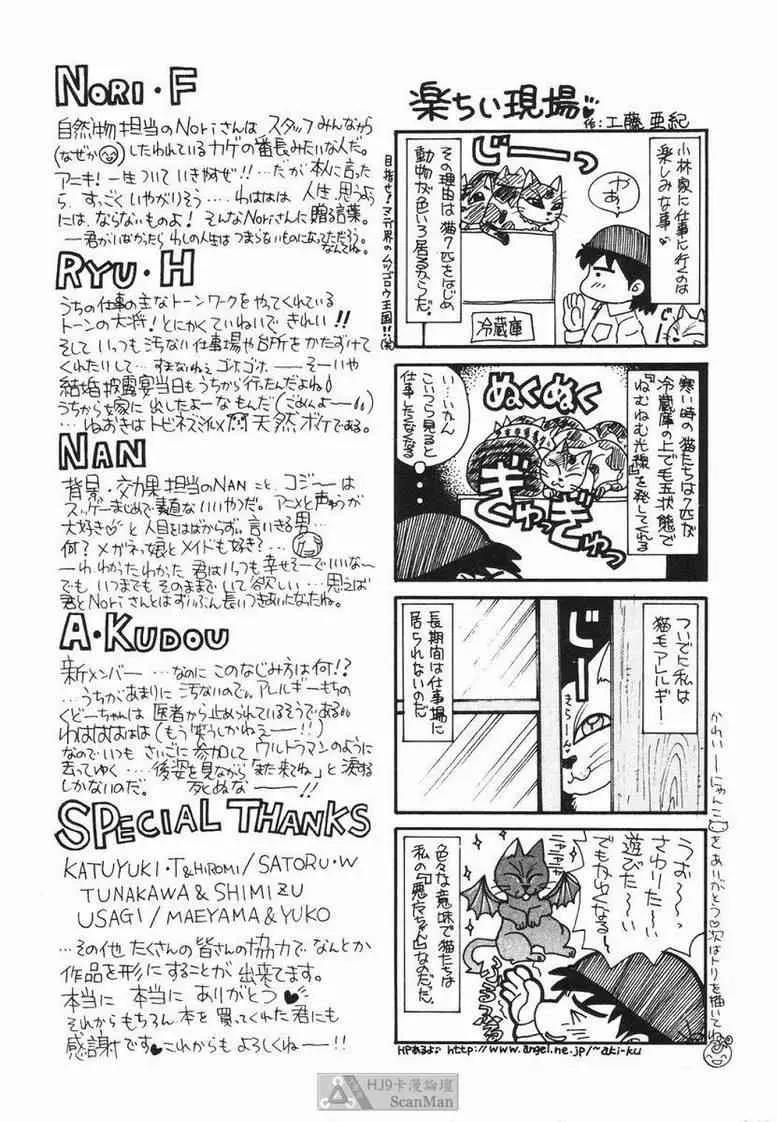 NORI・F
自然物担当のNoriさんは スタッフみんなから
(なぜか)したわれているカゲの番長みたいな人だ。
アニキ！一生ついていきますぜ!!…だが本人に言ったら、すっごくいやがりそう…わははは 人生、思うよう
には、ならないものよ！そんなNoriさんに贈る言葉。
―君がいなかったら わしの人生は つまらないものになってただろう。
なんてね。
RYU・H
うちの仕事の主なトーンワークをやってくれている
トーンの大将！とにかくていねいで きれい!!
そして いつも汚ない仕事場や台所をかたずけて
くれたりして…すまないねぇ ゴホゴホ ―そーいや
結婚披露宴当日もうちから行ったんだよね
うちから嫁に出したよーなもんだ(ごめんよー)
…ねおきはトビネズミ 天然ボケである。
NAN
背景・効果担当のNANこと、コジ―は
スッゲーまじめで素直ないいやつだ。アニメと声ゆうが
大好き と人目をはばからず。言いきる男…
何？メガネっ娘とメイドも好き？…
―わ、わかったわかった 君はいつも幸せそーでいいな〜
でも いつまでもそのままでいて欲しい…思えば
君とNoriさんとはずいぶん長いつきあいになったね。
A・KUDOU
新メンバー…なのに このなじみ方は何!?
…うちがあまりに汚ないので、アレルギーもちの
くどーちゃんは 医者から止められているそうである
わはははは(もう笑うしかねぇ――!!)
なのでいつも さいごに参加して ウルトラマンのように
去ってゆく…後姿を見ながら「また来てね」と涙する
しかないのだ。 死ぬな――!!
SPECIAL THANKS
KATUYUKI・T & HIROMI / SATORU・W
TUNAKAWA & SHIMIZU
USAGI / MAEYAMA & YUKO
…その他 たくさんの皆さんの協力で なんとか
作品を形にすることが 出来てます。
本当に 本当に ありがとう
それからもちろん 本を 買ってくれた君にも
感謝です これからも よろしくねー!!
楽ちい現場
作：工藤 亜紀
小林家に仕事に行くのは
楽しみな事
やあ
じーっ
その理由は猫7匹をはじめ
動物が色いろ居るからだ。
冷蔵庫
目指せ！マンガ界のムツゴロウ王国!!(笑)
寒い時の猫たちは7匹が
冷蔵庫の上で毛玉状態で
『ねむねむ光線』を発してくれる
ぬくぬく
ぎゅっぎゅっ
い…いかん
こいつら見ると
仕事したくなくなる
ついでに私は
猫毛アレルギー
じー
きらーん
長期間は仕事場に
居られないのだ
うお〜〜っ
さわりた〜い
遊びた〜い
でもかゆくなる〜
色々な意味で猫たちは
私の『悪魔ちゃん』なのだった。
かわいーにゃんこをありがとう 次はトリを描いてね
HPあるよ http://www.angel.ne.jp/~aki-ku
HJ9卡漫論壇
ScanMan